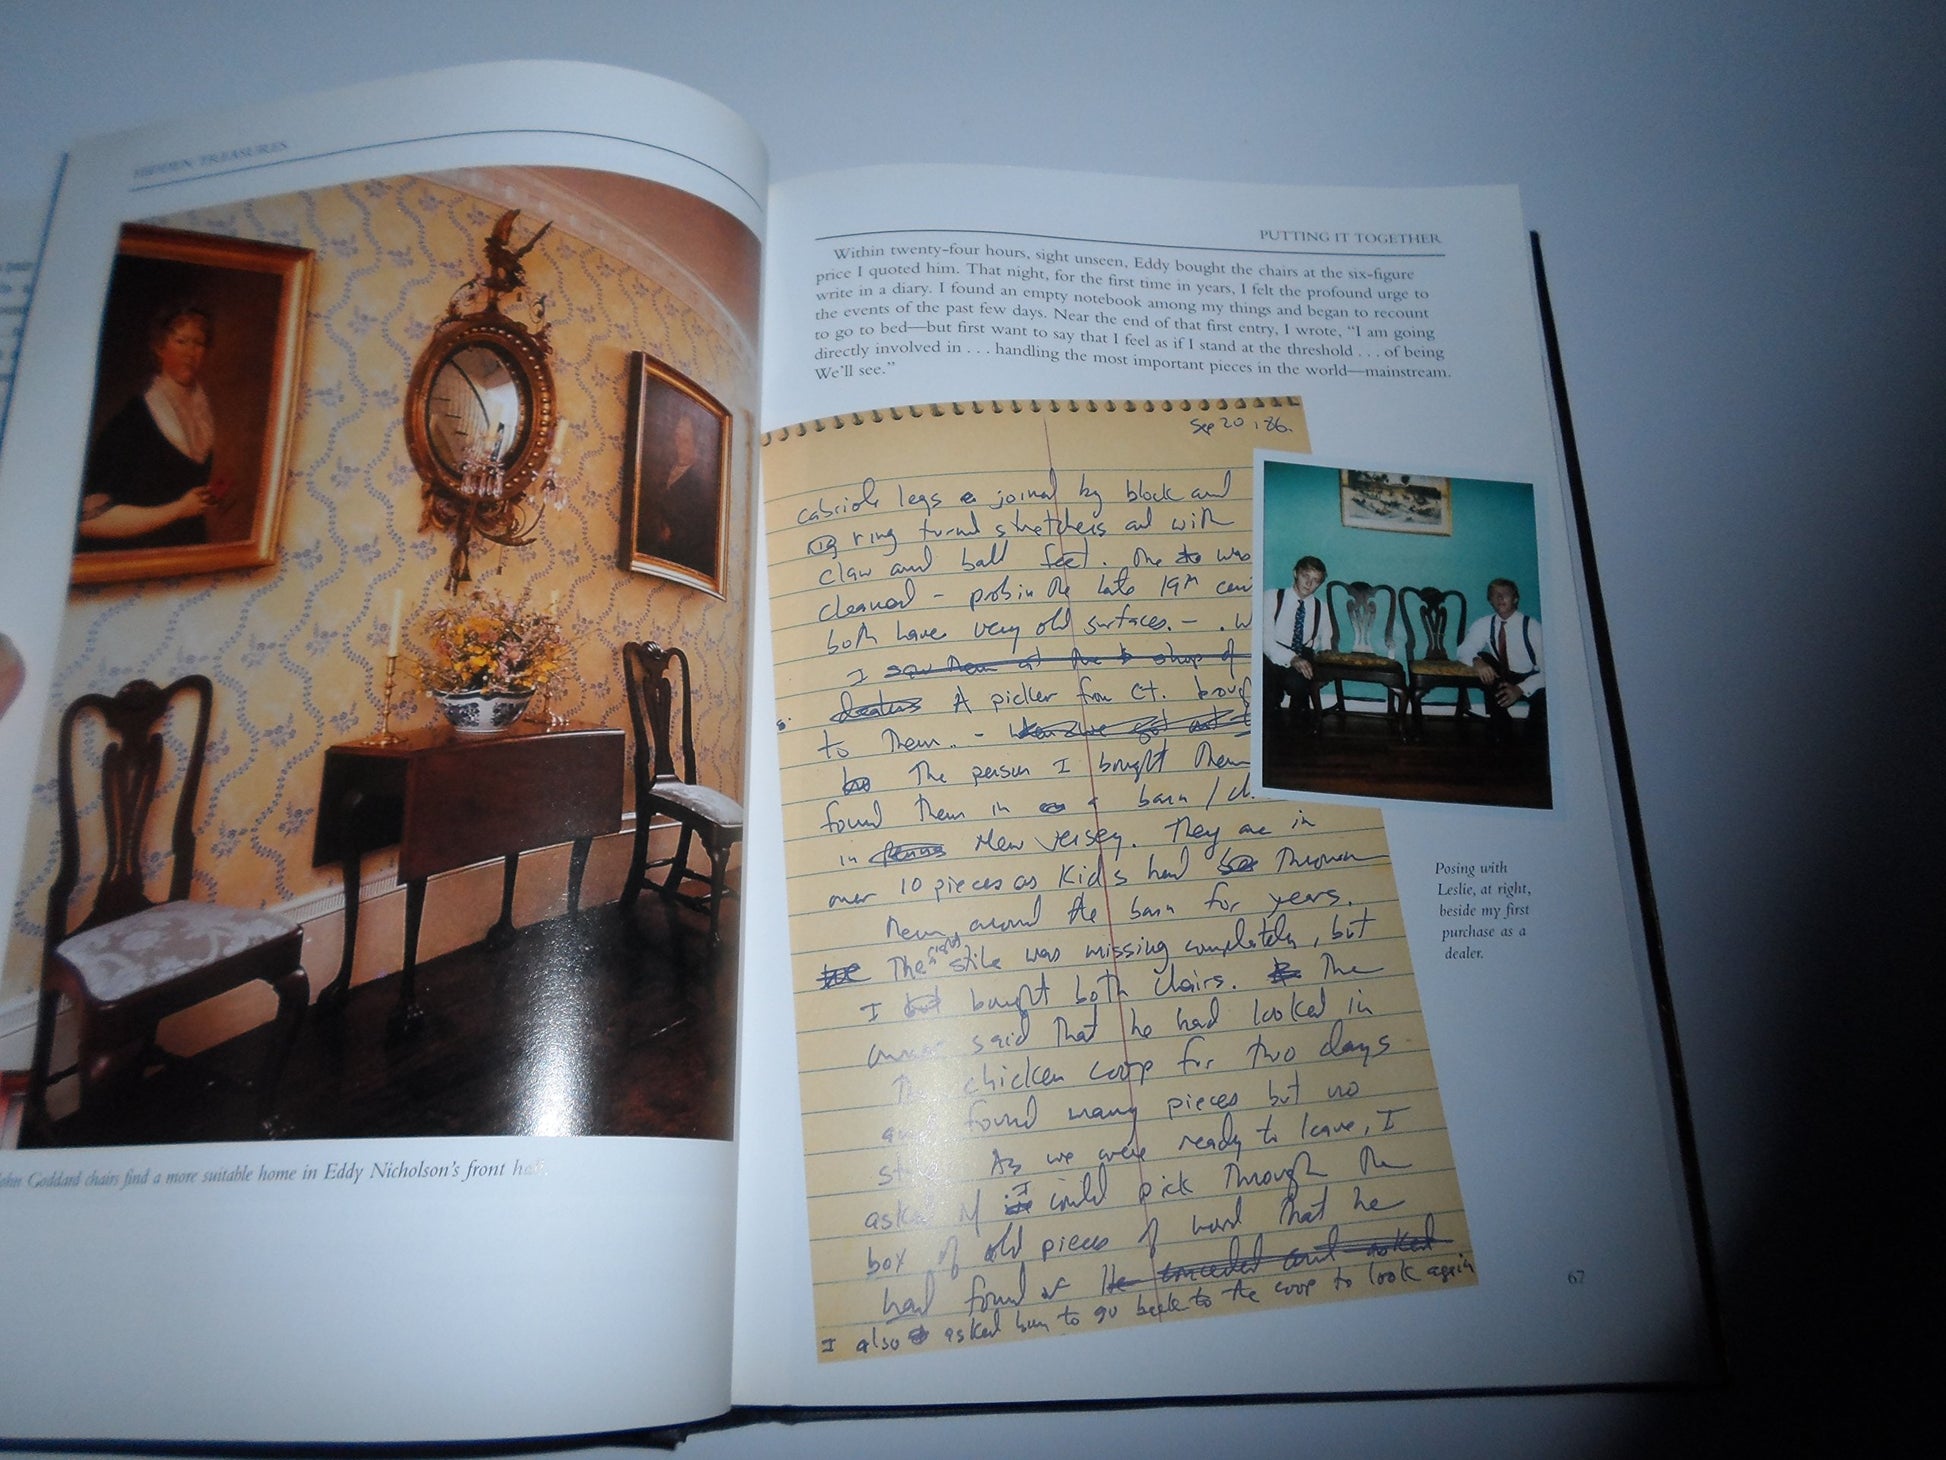 HIDDEN TREASURES
John Goddard chairs find a more suitable home in Eddy Nicholson's front hall.
PUTTING IT TOGETHER
Within twenty-four hours, sight unseen, Eddy bought the chairs at the six-figure
price I quoted him. That night, for the first time in years, I felt the profound urge to
write in a diary. I found an empty notebook among my things and began to recount
the events of the past few days. Near the end of that first entry, I wrote, "I am going
to go to bed—but first want to say that I feel as if I stand at the threshold . . . of being
directly involved in . . . handling the most important pieces in the world—mainstream.
We'll see."
Sep 20, 86.
cabriole legs joined by block and
ring turned stretchers and with
claw and ball feet. One was
cleaned - prob in the late 19th cen
both have very old surfaces. - . W
I saw them at the shop of
dealers A picker from Ct. broug
to them. -
The person I bought them
found them in a barn / ch
in Penna New Jersey. They are in
over 10 pieces as kids had thrown
them around the barn for years.
The right stile was missing completely, but
I bought both chairs. The
owner said that he had looked in
The chicken coop for two days
and found many pieces but no
As we were ready to leave, I
asked if I could pick through the
box of old pieces of wood that he
had found He conceded and asked
I also asked him to go back to the coop to look again
Posing with
Leslie, at right,
beside my first
purchase as a
dealer.
67